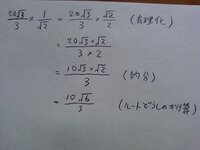 20√3/3 × 1/√2 = 20√3/3 × √2/2 (有理化)
= 20√3×√2/3×2
= 10√3×√2/3 (約分)
= 10√6/3 (ルートどうしのかけ算)